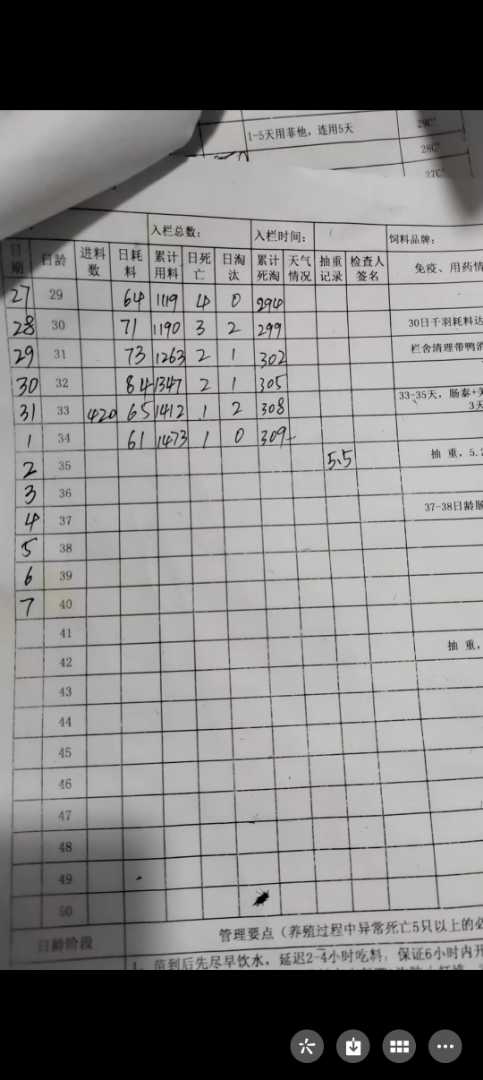 1-5天用菲他，连用5天
29C°
28C°
27C°
入栏总数： 入栏时间： 饲料品牌：
日期 日龄 进料数 日耗料 累计用料 日死亡 日淘汰 累计死淘 天气情况 抽重记录 检查人签名 免疫、用药情
27 29 64 1119 4 0 294
28 30 71 1190 3 2 299 30日千羽耗料达
29 31 73 1263 2 1 302 栏舍清理带鸭消
30 32 84 1347 2 1 305
31 33 420 65 1412 1 2 308 33-35天，肠泰+
3天
1 34 61 1473 1 0 309
2 35 5.5 抽 重，5.2
3 36
4 37 37-38日龄
5 38
6 39
7 40
41
42 抽 重，
43
44
45
46
47
48
49
50
日龄阶段 管理要点（养殖过程中异常死亡5只以上的必
1、苗到后先尽早饮水，延迟2-4小时吃料，保证6小时内开